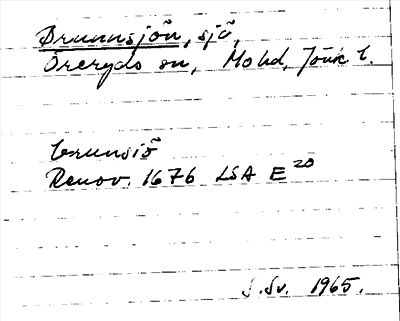 Brunnsjön, sjö,
Öreryds sn, Mo hd, Jönk l.
Brunsiö
Renov. 1676 LSA E 20
S.Sv. 1965.